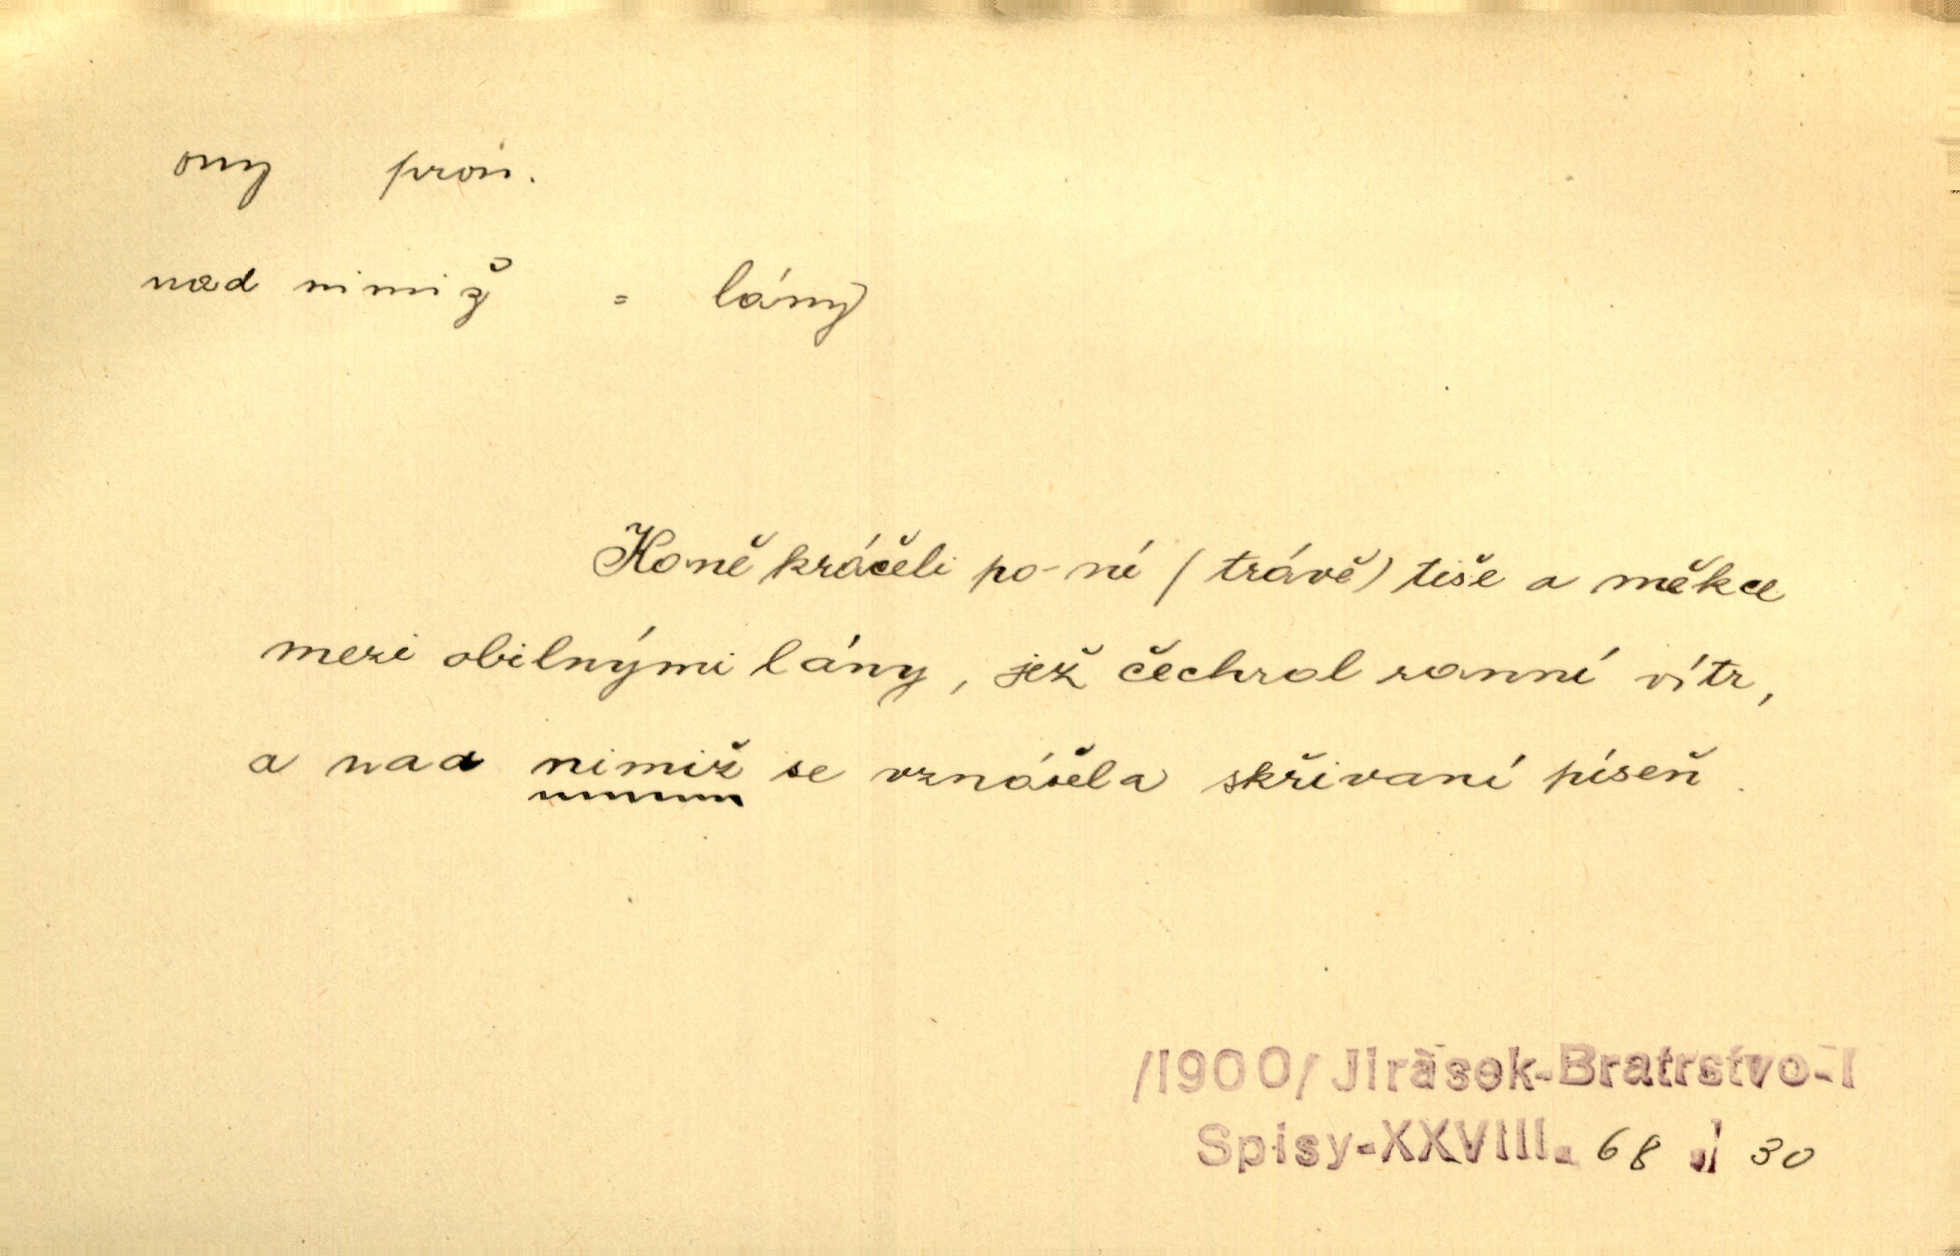 ony pron.
nad nimiž = lány
Koně kráčeli po ní (trávě) tiše a měkce
mezi obilnými lány, jež čechral ranní vítr,
a nad nimiž se vznášela skřivaní píseň.
/1900/ Jirásek-Bratrstvo-I
Spisy-XXVIII. 68 / 30